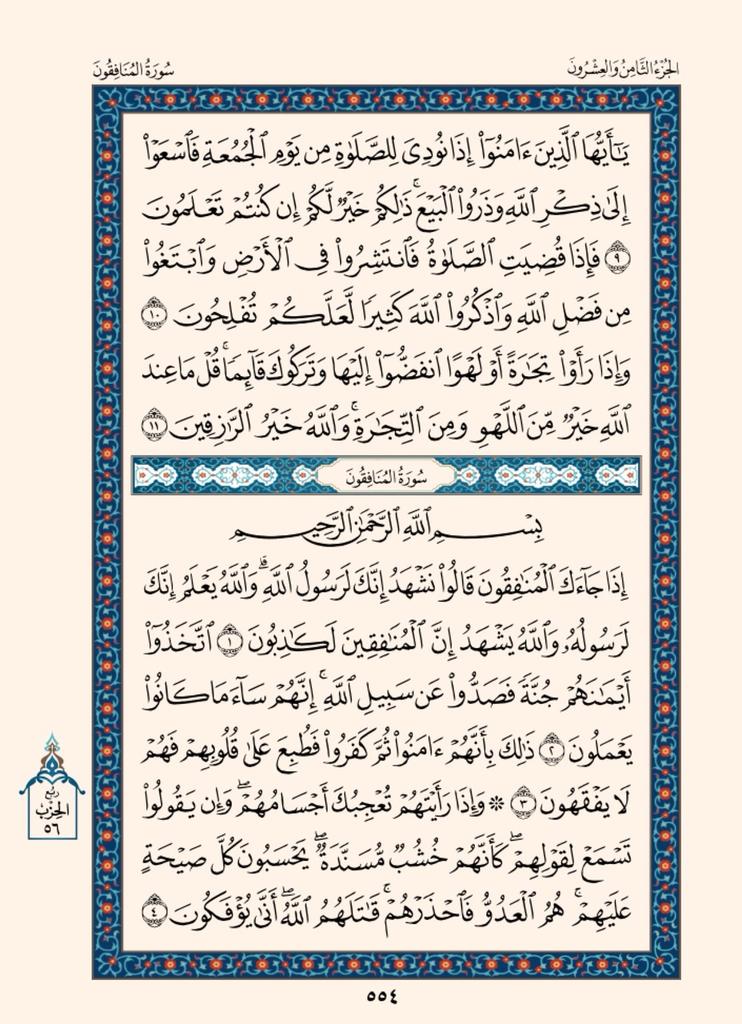 الجُزْءُ الثَّامِنُ وَالعِشْرُونَ
سُورَةُ المُنَافِقُونَ
يَـٰٓأَيُّهَا ٱلَّذِينَ ءَامَنُوٓا۟ إِذَا نُودِىَ لِلصَّلَوٰةِ مِن يَوْمِ ٱلْجُمُعَةِ فَٱسْعَوْا۟
إِلَىٰ ذِكْرِ ٱللَّهِ وَذَرُوا۟ ٱلْبَيْعَ ۚ ذَٰلِكُمْ خَيْرٌ لَّكُمْ إِن كُنتُمْ تَعْلَمُونَ
٩ فَإِذَا قُضِيَتِ ٱلصَّلَوٰةُ فَٱنتَشِرُوا۟ فِى ٱلْأَرْضِ وَٱبْتَغُوا۟
مِن فَضْلِ ٱللَّهِ وَٱذْكُرُوا۟ ٱللَّهَ كَثِيرًا لَّعَلَّكُمْ تُفْلِحُونَ ١٠
وَإِذَا رَأَوْا۟ تِجَـٰرَةً أَوْ لَهْوًا ٱنفَضُّوٓا۟ إِلَيْهَا وَتَرَكُوكَ قَآئِمًا ۚ قُلْ مَا عِندَ
ٱللَّهِ خَيْرٌ مِّنَ ٱللَّهْوِ وَمِنَ ٱلتِّجَـٰرَةِ ۚ وَٱللَّهُ خَيْرُ ٱلرَّٰزِقِينَ ١١
سُورَةُ المُنَافِقُونَ
بِسْمِ ٱللَّهِ ٱلرَّحْمَـٰنِ ٱلرَّحِيمِ
إِذَا جَآءَكَ ٱلْمُنَـٰفِقُونَ قَالُوا۟ نَشْهَدُ إِنَّكَ لَرَسُولُ ٱللَّهِ ۗ وَٱللَّهُ يَعْلَمُ إِنَّكَ
لَرَسُولُهُۥ وَٱللَّهُ يَشْهَدُ إِنَّ ٱلْمُنَـٰفِقِينَ لَكَـٰذِبُونَ ١ ٱتَّخَذُوٓا۟
أَيْمَـٰنَهُمْ جُنَّةً فَصَدُّوا۟ عَن سَبِيلِ ٱللَّهِ ۚ إِنَّهُمْ سَآءَ مَا كَانُوا۟
يَعْمَلُونَ ٢ ذَٰلِكَ بِأَنَّهُمْ ءَامَنُوا۟ ثُمَّ كَفَرُوا۟ فَطُبِعَ عَلَىٰ قُلُوبِهِمْ فَهُمْ
لَا يَفْقَهُونَ ٣ ۞ وَإِذَا رَأَيْتَهُمْ تُعْجِبُكَ أَجْسَامُهُمْ ۖ وَإِن يَقُولُوا۟
تَسْمَعْ لِقَوْلِهِمْ ۖ كَأَنَّهُمْ خُشُبٌ مُّسَنَّدَةٌ ۖ يَحْسَبُونَ كُلَّ صَيْحَةٍ
عَلَيْهِمْ ۚ هُمُ ٱلْعَدُوُّ فَٱحْذَرْهُمْ ۚ قَـٰتَلَهُمُ ٱللَّهُ ۖ أَنَّىٰ يُؤْفَكُونَ ٤
رُبْع
الحِزْب
٥٦
٥٥٤